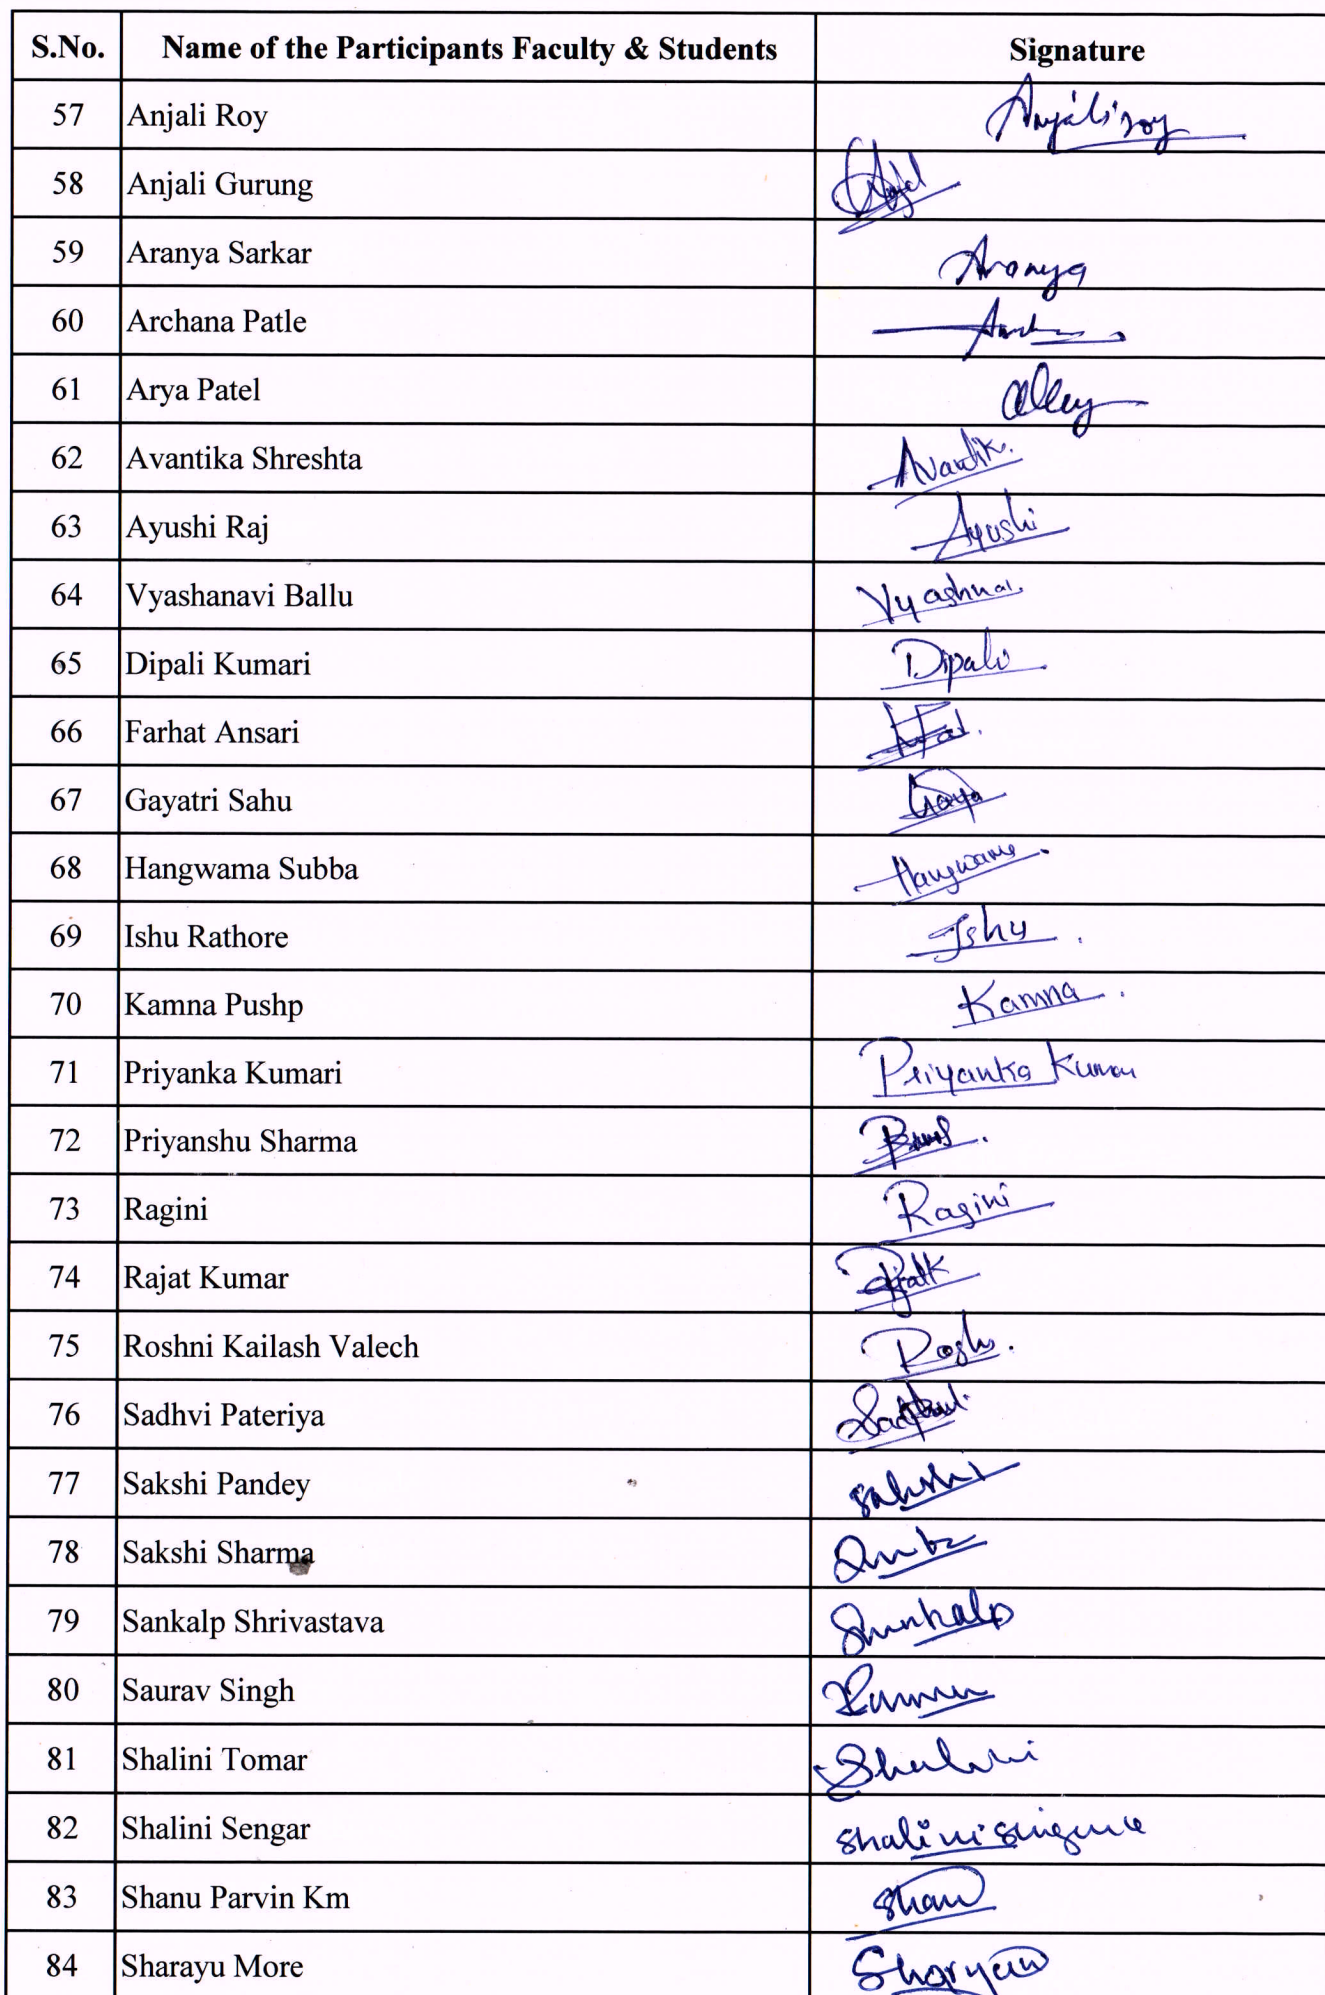 S.No. Name of the Participants Faculty & Students Signature
57 Anjali Roy Anjali roy
58 Anjali Gurung
59 Aranya Sarkar Aranya
60 Archana Patle
61 Arya Patel
62 Avantika Shreshta Avantik.
63 Ayushi Raj Ayushi
64 Vyashanavi Ballu
65 Dipali Kumari Dipali
66 Farhat Ansari
67 Gayatri Sahu Gaya
68 Hangwama Subba Hangwama.
69 Ishu Rathore Ishu.
70 Kamna Pushp Kamna.
71 Priyanka Kumari Priyanka Kumari
72 Priyanshu Sharma
73 Ragini Ragini
74 Rajat Kumar
75 Roshni Kailash Valech
76 Sadhvi Pateriya
77 Sakshi Pandey Sakshi
78 Sakshi Sharma
79 Sankalp Shrivastava Sankalp
80 Saurav Singh
81 Shalini Tomar Shalini
82 Shalini Sengar Shalini
83 Shanu Parvin Km
84 Sharayu More